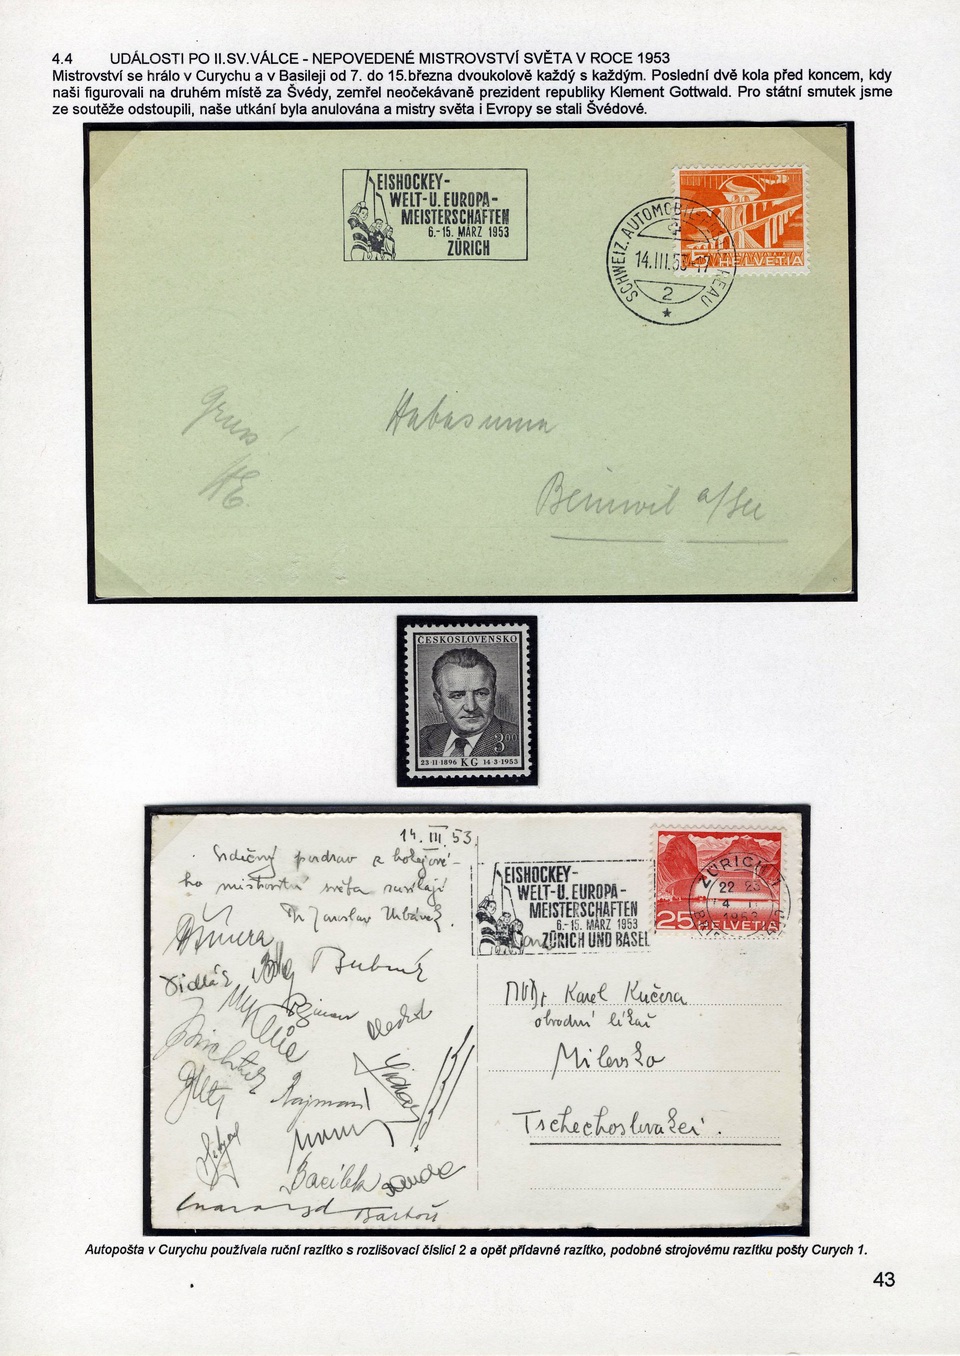 4.4 UDÁLOSTI PO II.SV.VÁLCE - NEPOVEDENÉ MISTROVSTVÍ SVĚTA V ROCE 1953
Mistrovství se hrálo v Curychu a v Basileji od 7. do 15.března dvoukolově každý s každým. Poslední dvě kola před koncem, kdy
naši figurovali na druhém místě za Švédy, zemřel neočekávaně prezident republiky Klement Gottwald. Pro státní smutek jsme
ze soutěže odstoupili, naše utkání byla anulována a mistry světa i Evropy se stali Švédové.
EISHOCKEY-
WELT-U. EUROPA-
MEISTERSCHAFTEN
6.-15. MÄRZ 1953
ZÜRICH
SCHWEIZ. AUTOMOBIL
14.III.53-17
2
HELVETIA
Gruss
HE.
Beinwil a/See
ČESKOSLOVENSKO
3 00
23·II·1896 KG 14·3·1953
14. III. 53.
Srdečný pozdrav z hokejové-
ho mistrovství světa zasílají
Dr Jaroslav
EISHOCKEY-
WELT-U. EUROPA-
MEISTERSCHAFTEN
6.-15. MÄRZ 1953
ZÜRICH UND BASEL
ZÜRICH 1
22 23
1953
25 HELVETIA
Bubník
Rejman
Bacílek
Bartoň
MUDr Karel Kučera
obvodní lékař
Milevsko
Tschechoslovakei.
Autopošta v Curychu používala ruční razítko s rozlišovací číslicí 2 a opět přídavné razítko, podobné strojovému razítku pošty Curych 1.
43